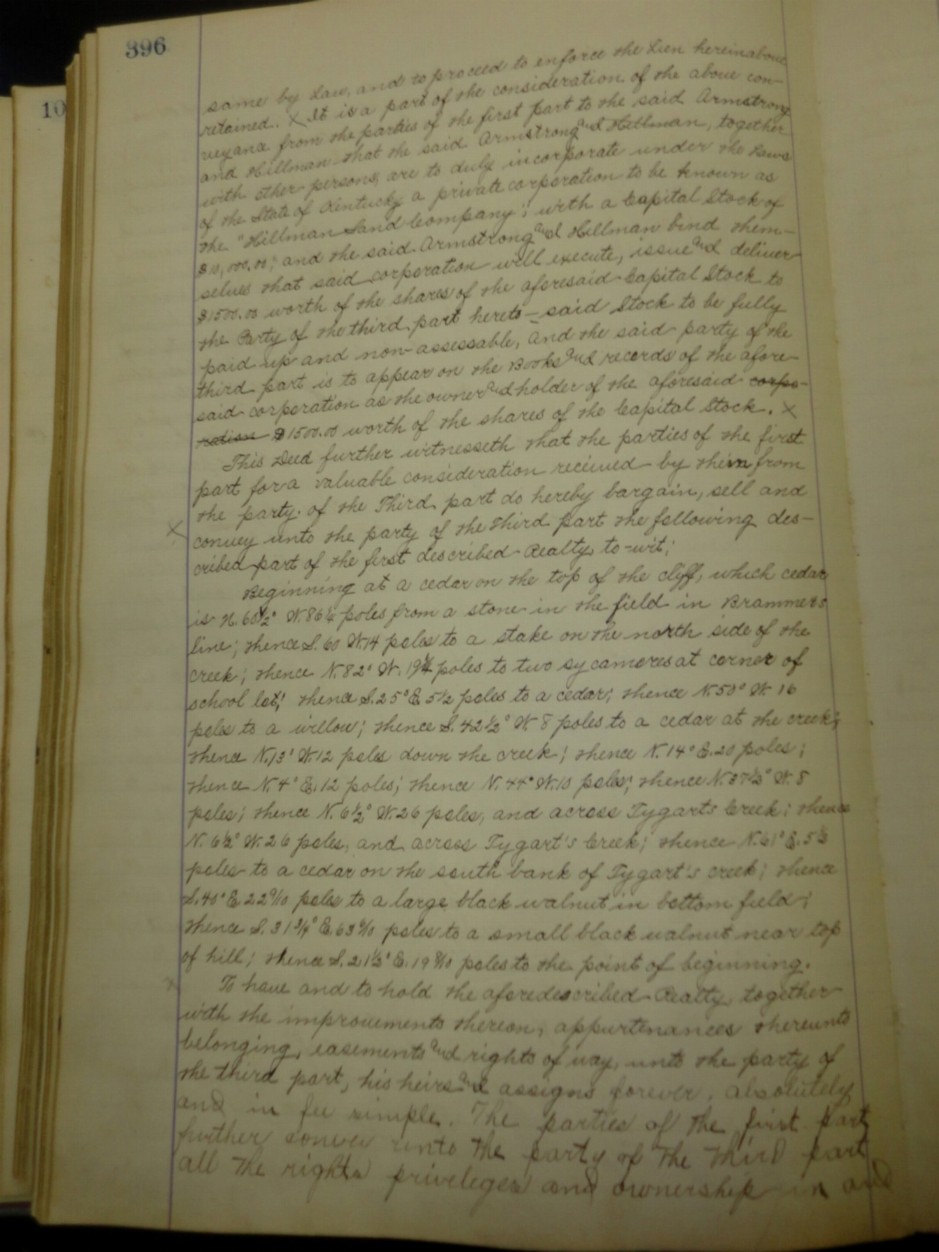 396
10
same by Law, and to proceed to enforce the Lien hereinabove
retained. X It is a part of the consideration of the above con-
veyance from the parties of the first part to the said Armstrong
and Hillman that the said Armstrong and Hillman, together
with other persons, are to duly incorporate under the Laws
of the State of Kentucky a private corporation to be known as
the "Hillman Sand Company"; with a Capital Stock of
$10,000.00; and the said Armstrong and Hillman bind them-
selves that said corporation will execute, issue and deliver
$1500.00 worth of the shares of the aforesaid Capital Stock to
the Party of the third part hereto – said Stock to be fully
paid up and non-assessable, and the said party of the
third part is to appear on the Books and records of the afore-
said corporation as the owner and holder of the aforesaid corpo-
ration $1500.00 worth of the shares of the Capital Stock. X
This Deed further witnesseth that the parties of the first
part for a valuable consideration received by them from
the party of the Third part do hereby bargain, sell and
X convey unto the party of the third part the following des-
cribed part of the first described Realty to-wit;
Beginning at a cedar on the top of the cliff, which cedar
is N. 68½° W. 86½ poles from a stone in the field in Brammers
line; thence S. 60 W. 14 poles to a stake on the north side of the
creek; thence N. 82° W. 19¼ poles to two sycamores at corner of
school lot; thence S. 25° E. 5½ poles to a cedar; thence N. 50° W. 16
poles to a willow; thence S. 42½° W. 8 poles to a cedar at the creek;
thence N. 13° W. 12 poles down the creek; thence N. 14° E. 20 poles;
thence N. 4° E. 12 poles; thence N. 44° W. 10 poles; thence N. 37½° W. 8
poles; thence N. 6½° W. 26 poles, and across Tygarts Creek; thence
N. 6½° W. 26 poles, and across Tygart's Creek; thence N. 61° E. 5½
poles to a cedar on the south bank of Tygart's creek; thence
S. 40° E. 22 9/10 poles to a large black walnut in bottom field;
thence S. 31¼° E. 63 8/10 poles to a small black walnut near top
of hill; thence S. 21½° E. 19 8/10 poles to the point of beginning.
To have and to hold the aforedescribed Realty, together
with the improvements thereon, appurtenances thereunto
belonging, easements and rights of way, unto the party of
the third part, his heirs and assigns forever, absolutely
and in fee simple. The parties of the first part
further convey unto the party of the third part
all the rights privileges and ownership in and